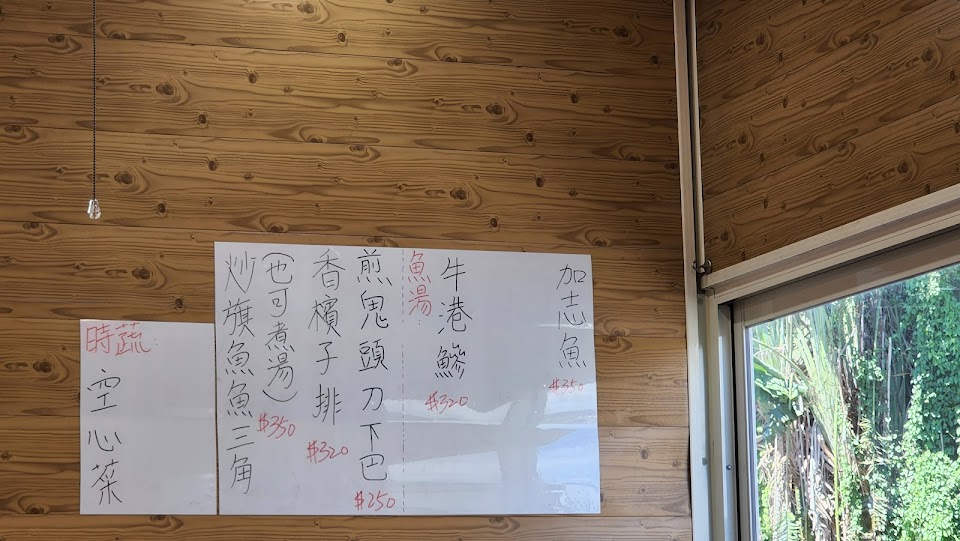 加志魚
$350
牛港鰺
$320
魚湯:
煎鬼頭刀下巴
$250
香檳子排
$320
(也可煮湯)
$350
炒旗魚魚三角
時蔬:
空心菜